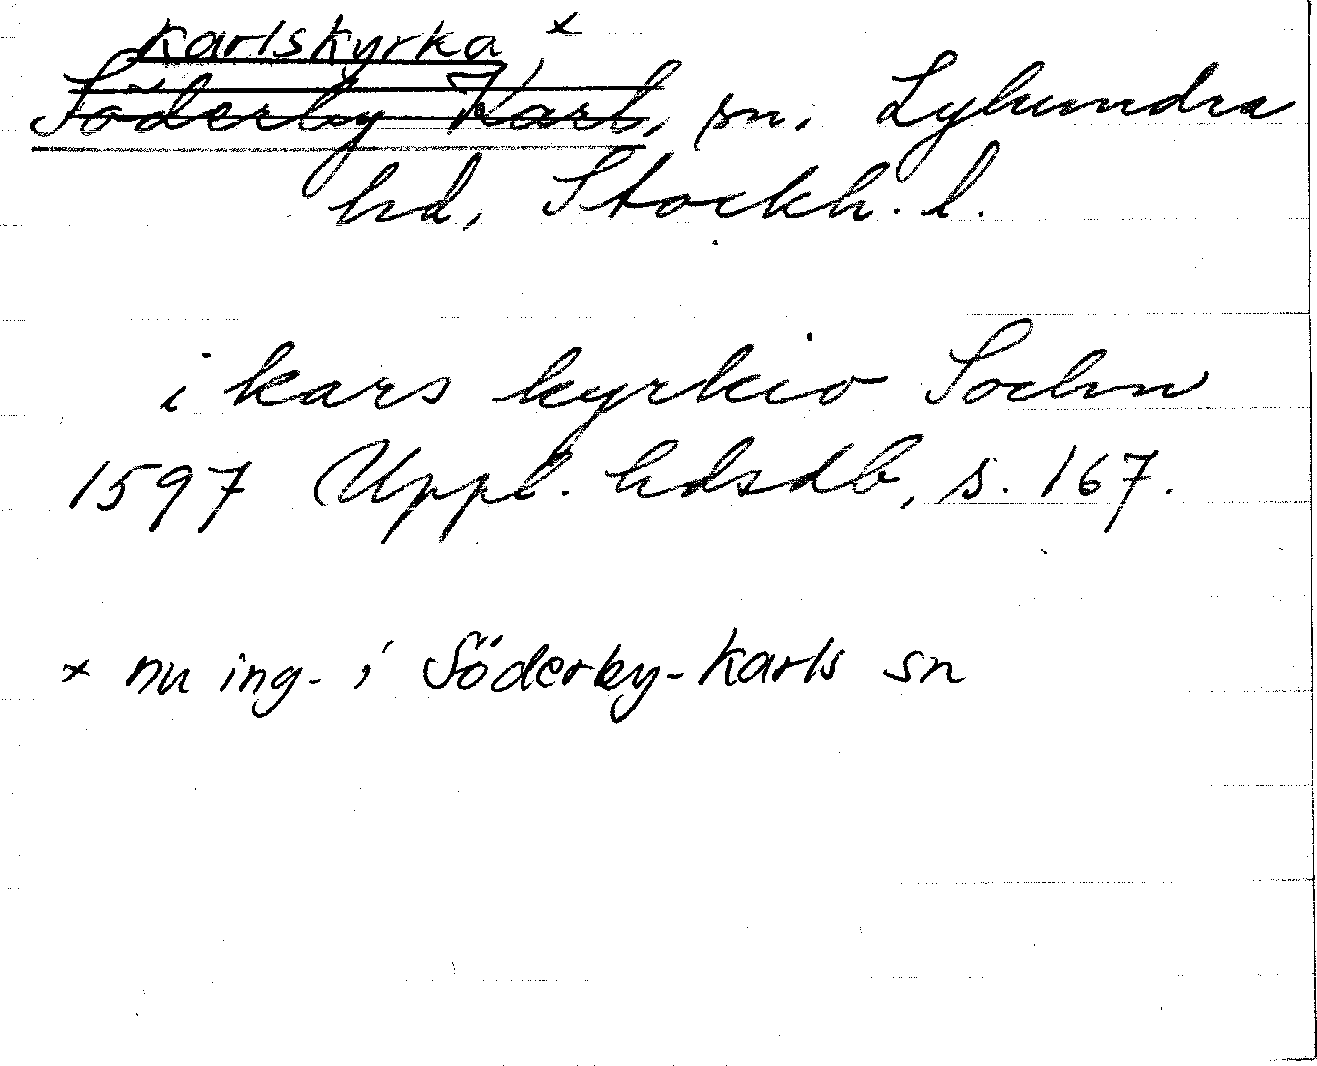 Karlskyrka, x
Söderby Karl, sn, Lyhundra
hd, Stockh. l.
i kars kyrkio Sochn
1597 Uppl. hdsdb, s. 167.
x nu ing. i Söderby-Karls sn